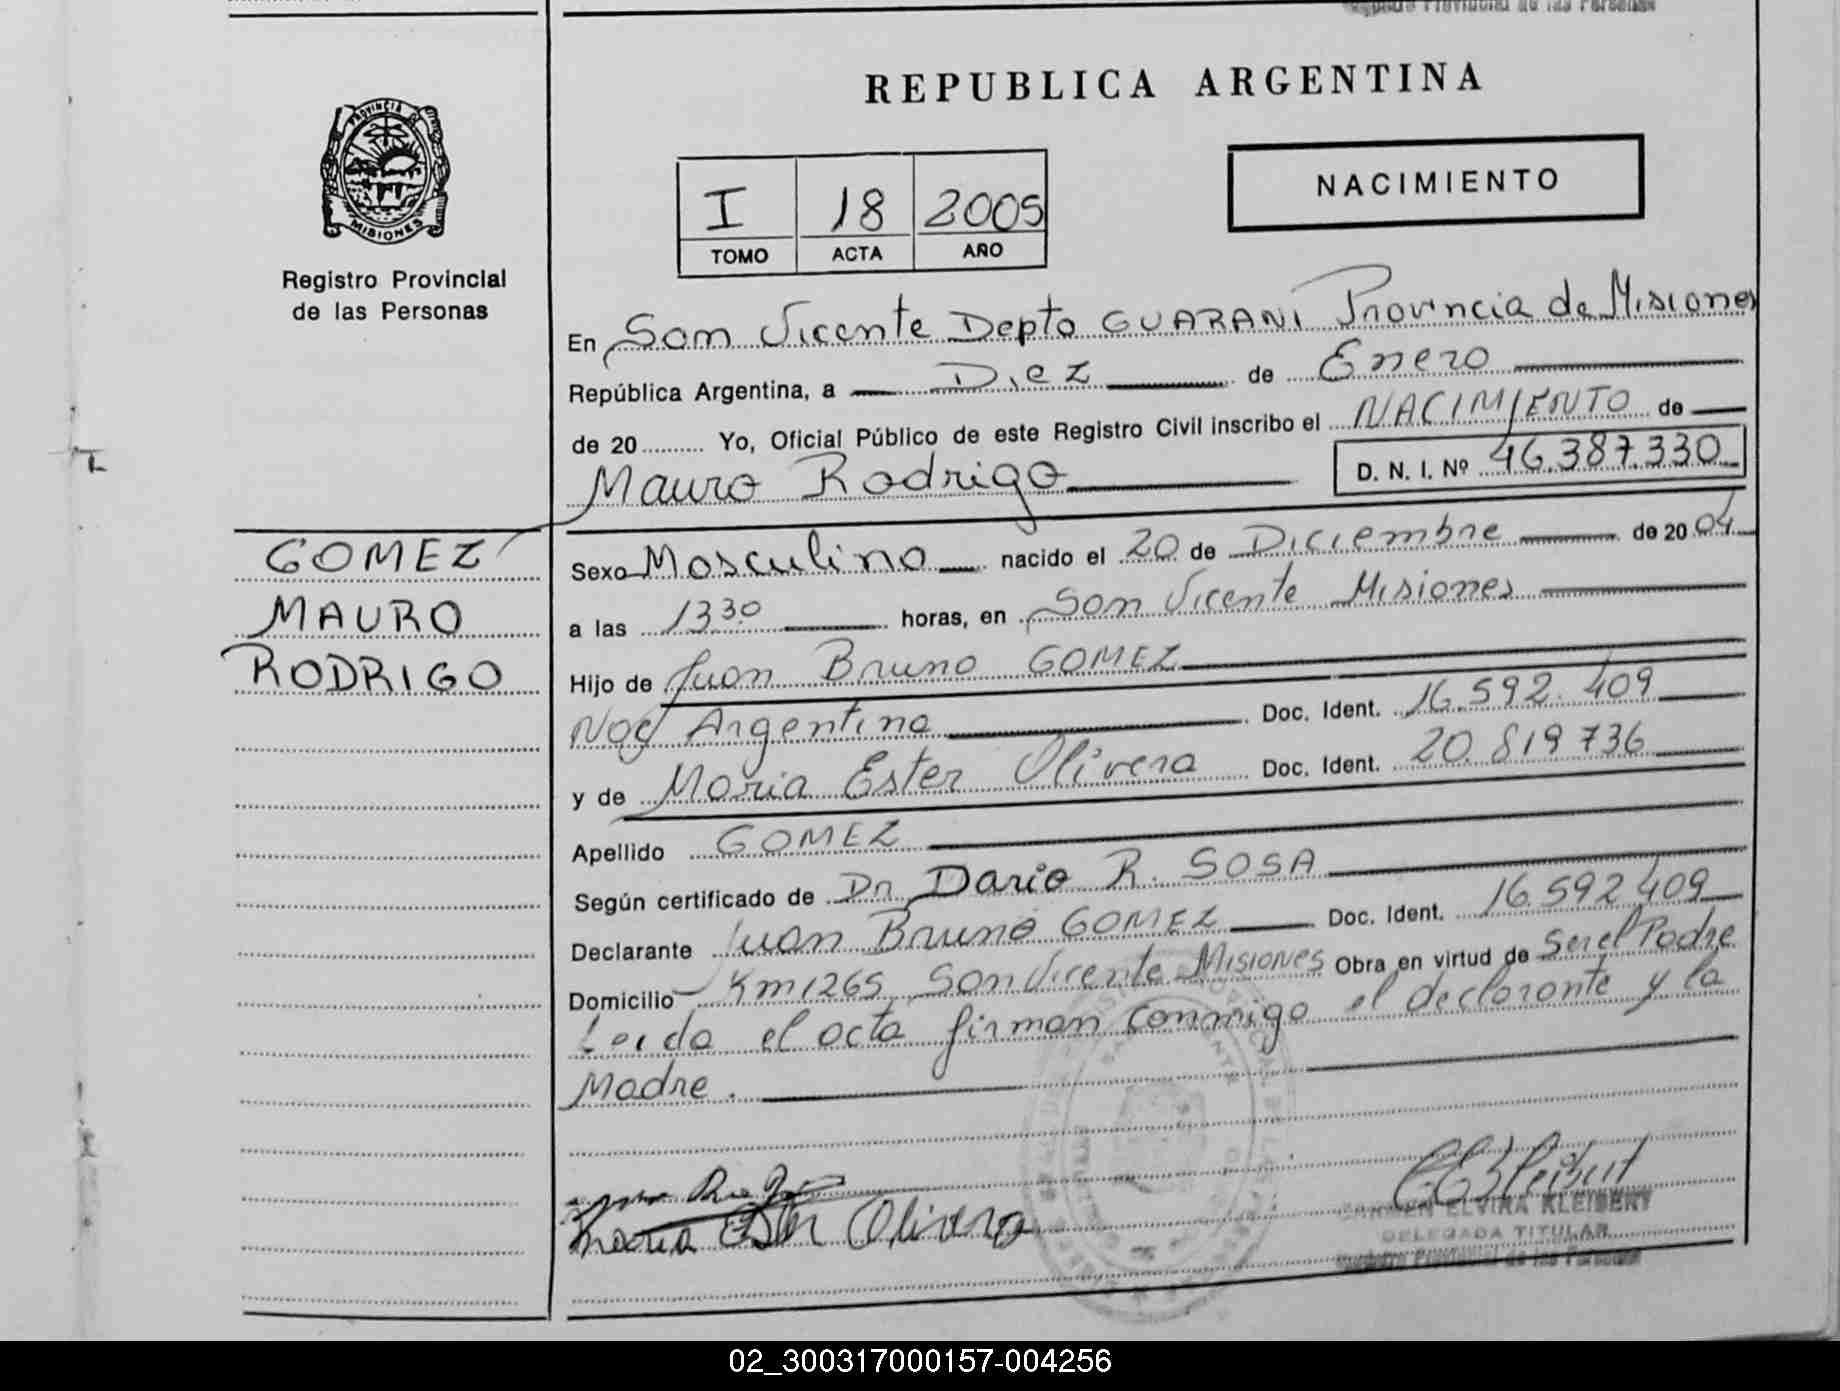 REPUBLICA ARGENTINA
PROVINCIA DE
MISIONES
Registro Provincial
de las Personas
I 18 2005
TOMO ACTA AÑO
NACIMIENTO
En San Vicente Depto GUARANI Provincia de Misiones
República Argentina, a Diez de Enero
de 20 Yo, Oficial Público de este Registro Civil inscribo el NACIMIENTO de
Mauro Rodrigo D. N. I. Nº 46.387.330
GOMEZ
MAURO
RODRIGO
Sexo Masculino nacido el 20 de Diciembre de 20 04
a las 13 30 horas, en San Vicente Misiones
Hijo de Juan Bruno GOMEZ
Nac Argentina Doc. Ident. 16.592.409
y de Maria Ester Olivera Doc. Ident. 20.819 736
Apellido GOMEZ
Según certificado de Dr. Dario R. SOSA
Declarante Juan Bruno GOMEZ Doc. Ident. 16.592 409
Domicilio Km 1265 San Vicente MISIONES Obra en virtud de Ser el Padre
Leida el acta firman conmigo el declarante y la
Madre.
Maria Ester Olivera
CARMEN ELVIRA KLEIBERT
DELEGADA TITULAR
Registro Provincial de las Personas
02_300317000157-004256